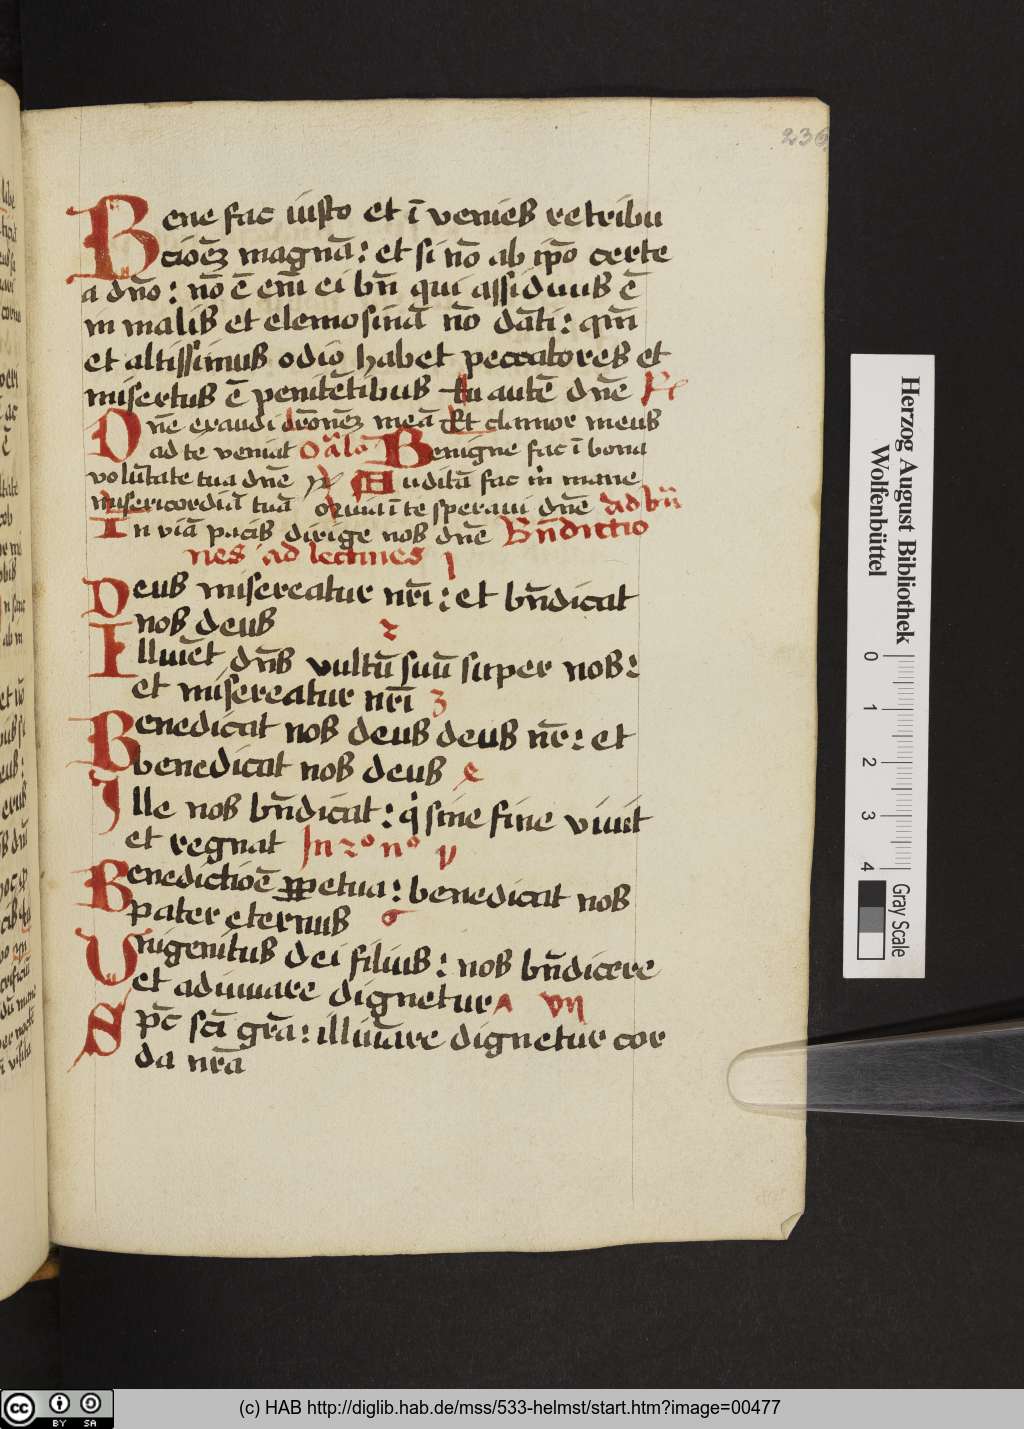 236
Bene fac iusto et ī venies retribu
cioēz magnā: et si nō ab ipo certe
a dno: nō ē eni ei bn qui assiduus ē
in malis et elemosinā nō dāti: qm
et altissimus odio habet peccatores et
misertus ē penitētibus tu autē dne
Dne exaudi orōnez meā Et clamor meus
ad te veniat Benigne fac ī bona
volūtate tua dne Auditā fac m mane
misericordiā tuā quia ī te speraui dne ad bn
In viā pacis dirige nos dne Bndictio
nes ad lectiones 1
Deus misereatur nri: et bndicat
nos deus 2
Illuiet dns vultū suū super nos:
et misereatur nri 3
Benedicat nos deus deus nr: et
benedicat nos deus
Ille nos bndicat: q sine fine viuit
et regnat In 2o no v
Benedictioē ppetua: benedicat nos
pater eternus
Unigenitus dei filius: nos bndicere
et adiuuare dignetur vii
Spc sci gra: illuiare dignetur cor
da nra
Herzog August Bibliothek
Wolfenbüttel
0 1 2 3 4
Gray Scale
cc BY SA
(c) HAB http://diglib.hab.de/mss/533-helmst/start.htm?image=00477